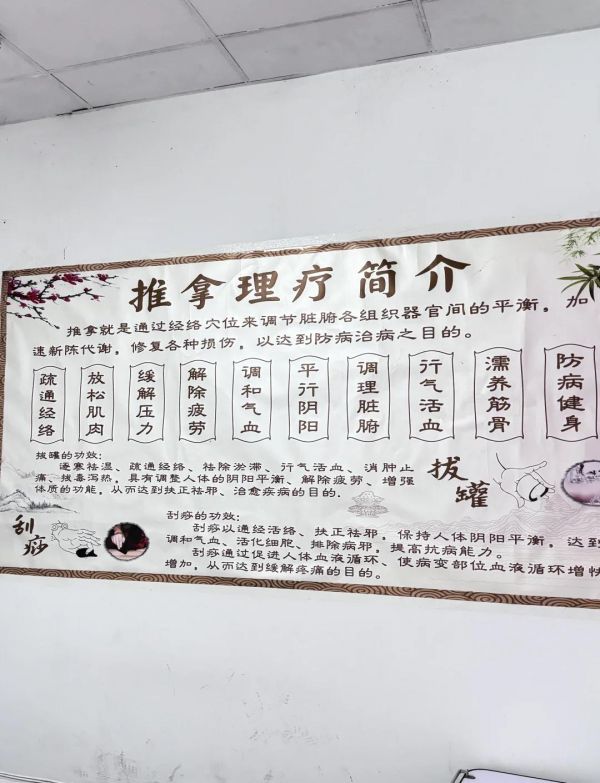 推拿理疗简介
推拿就是通过经络穴位来调节脏腑各组织器官间的平衡，加
速新陈代谢，修复各种损伤，以达到防病治病之目的。
疏通经络
放松肌肉
缓解压力
解除疲劳
调和气血
平行阴阳
调理脏腑
行气活血
濡养筋骨
防病健身
拔罐的功效：
逐寒祛湿、疏通经络、祛除淤滞、行气活血、消肿止
痛、拔毒泻热，具有调整人体的阴阳平衡、解除疲劳、增强
体质的功能，从而达到扶正祛邪、治愈疾病的目的.
拔罐
刮痧
刮痧的功效：
刮痧以通经活络、扶正祛邪，保持人体阴阳平衡，达到
调和气血、活化细胞、排除病邪，提高抗病能力。
刮痧通过促进人体血液循环、使病变部位血液循环增快
增加，从而达到缓解疼痛的目的。